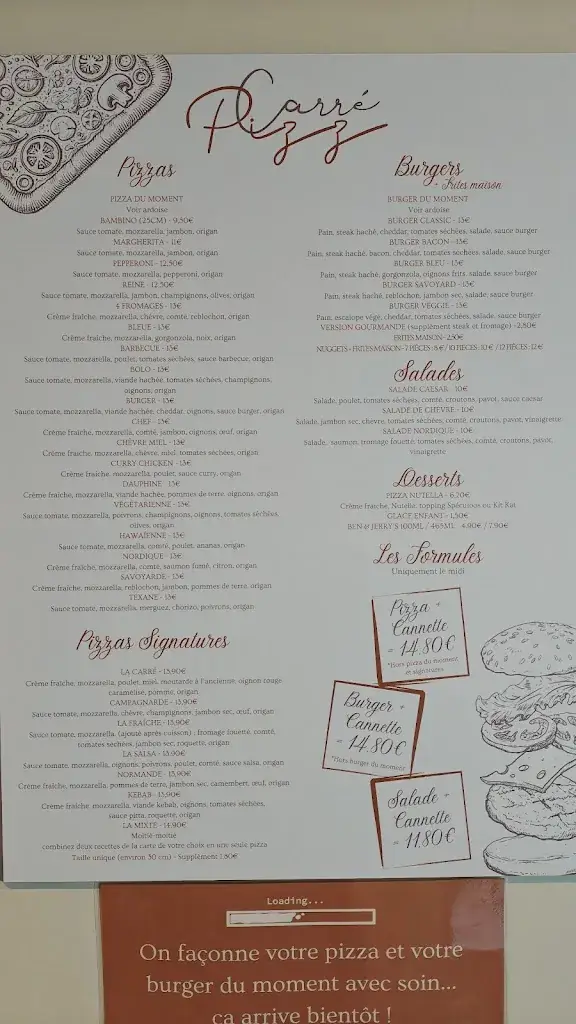 Carré
Pizz
Pizzas
PIZZA DU MOMENT
Voir ardoise
BAMBINO (25CM) - 9,50€
Sauce tomate, mozzarella, jambon, origan
MARGHERITA - 11€
Sauce tomate, mozzarella, jambon, origan
PEPPERONI - 12,50€
Sauce tomate, mozzarella, pepperoni, origan
REINE - 12,50€
Sauce tomate, mozzarella, jambon, champignons, olives, origan
4 FROMAGES - 13€
Crème fraîche, mozzarella, chèvre, comté, reblochon, origan
BLEUE - 13€
Crème fraîche, mozzarella, gorgonzola, noix, origan
BARBECUE - 13€
Sauce tomate, mozzarella, poulet, tomates séchées, sauce barbecue, origan
BOLO - 13€
Sauce tomate, mozzarella, viande hachée, tomates séchées, champignons,
oignons, origan
BURGER - 13€
Sauce tomate, mozzarella, viande hachée, cheddar, oignons, sauce burger, origan
CHEF - 13€
Crème fraîche, mozzarella, comté, jambon, oignons, œuf, origan
CHÈVRE MIEL - 13€
Crème fraîche, mozzarella, chèvre, miel, tomates séchées, origan
CURRY CHICKEN - 13€
Crème fraîche, mozzarella, poulet, sauce curry, origan
DAUPHINE - 13€
Crème fraîche, mozzarella, viande hachée, pommes de terre, oignons, origan
VÉGÉTARIENNE - 13€
Sauce tomate, mozzarella, poivrons, champignons, oignons, tomates séchées,
olives, origan
HAWAÏENNE - 13€
Sauce tomate, mozzarella, comté, poulet, ananas, origan
NORDIQUE - 13€
Crème fraîche, mozzarella, comté, saumon fumé, citron, origan
SAVOYARDE - 13€
Crème fraîche, mozzarella, reblochon, jambon, pommes de terre, origan
TEXANE - 13€
Sauce tomate, mozzarella, merguez, chorizo, poivrons, origan
Pizzas Signatures
LA CARRÉ - 13,90€
Crème fraîche, mozzarella, poulet, miel, moutarde à l'ancienne, oignon rouge
caramélisé, pomme, origan
CAMPAGNARDE - 13,90€
Sauce tomate, mozzarella, chèvre, champignons, jambon sec, œuf, origan
LA FRAÎCHE - 13,90€
Sauce tomate, mozzarella, (ajouté après cuisson) : fromage fouetté, comté,
tomates séchées, jambon sec, roquette, origan
LA SALSA - 13,90€
Sauce tomate, mozzarella, oignons, poivrons, poulet, comté, sauce salsa, origan
NORMANDE - 13,90€
Crème fraîche, mozzarella, pommes de terre, jambon sec, camembert, œuf, origan
KEBAB - 13,90€
Crème fraîche, mozzarella, viande kebab, oignons, tomates séchées,
sauce pitta, roquette, origan
LA MIXTE - 14,90€
Moitié-moitié
combinez deux recettes de la carte de votre choix en une seule pizza
Taille unique (environ 30 cm) - Supplément 1,80€
Burgers
+ Frites maison
BURGER DU MOMENT
Voir ardoise
BURGER CLASSIC - 13€
Pain, steak haché, cheddar, tomates séchées, salade, sauce burger
BURGER BACON - 13€
Pain, steak haché, bacon, cheddar, tomates séchées, salade, sauce burger
BURGER BLEU - 13€
Pain, steak haché, gorgonzola, oignons frits, salade, sauce burger
BURGER SAVOYARD - 13€
Pain, steak haché, reblochon, jambon sec, salade, sauce burger
BURGER VEGGIE - 13€
Pain, escalope végé, cheddar, tomates séchées, salade, sauce burger
VERSION GOURMANDE (supplément steak et fromage) +2,80€
FRITES MAISON - 2,50€
NUGGETS + FRITES MAISON - 7 PIÈCES : 8 € / 10 PIÈCES : 10 € / 12 PIÈCES : 12 €
Salades
SALADE CAESAR - 10€
Salade, poulet, tomates séchées, comté, croutons, pavot, sauce caesar
SALADE DE CHÈVRE - 10€
Salade, jambon sec, chèvre, tomates séchées, comté, croutons, pavot, vinaigrette
SALADE NORDIQUE - 10€
Salade, saumon, fromage fouetté, tomates séchées, comté, croutons, pavot,
vinaigrette
Desserts
PIZZA NUTELLA - 6,20€
Crème fraîche, Nutella, topping Spéculoos ou Kit Kat
GLACE ENFANT - 1,50€
BEN & JERRY'S 100ML / 465ML 4,90€ / 7,90€
Les Formules
Uniquement le midi
Pizza +
Cannette
= 14.80€
*Hors pizza du moment
et signatures
Burger +
Cannette
= 14.80€
*Hors burger du moment
Salade +
Cannette
= 11.80€
Loading...
On façonne votre pizza et votre
burger du moment avec soin...
ça arrive bientôt !